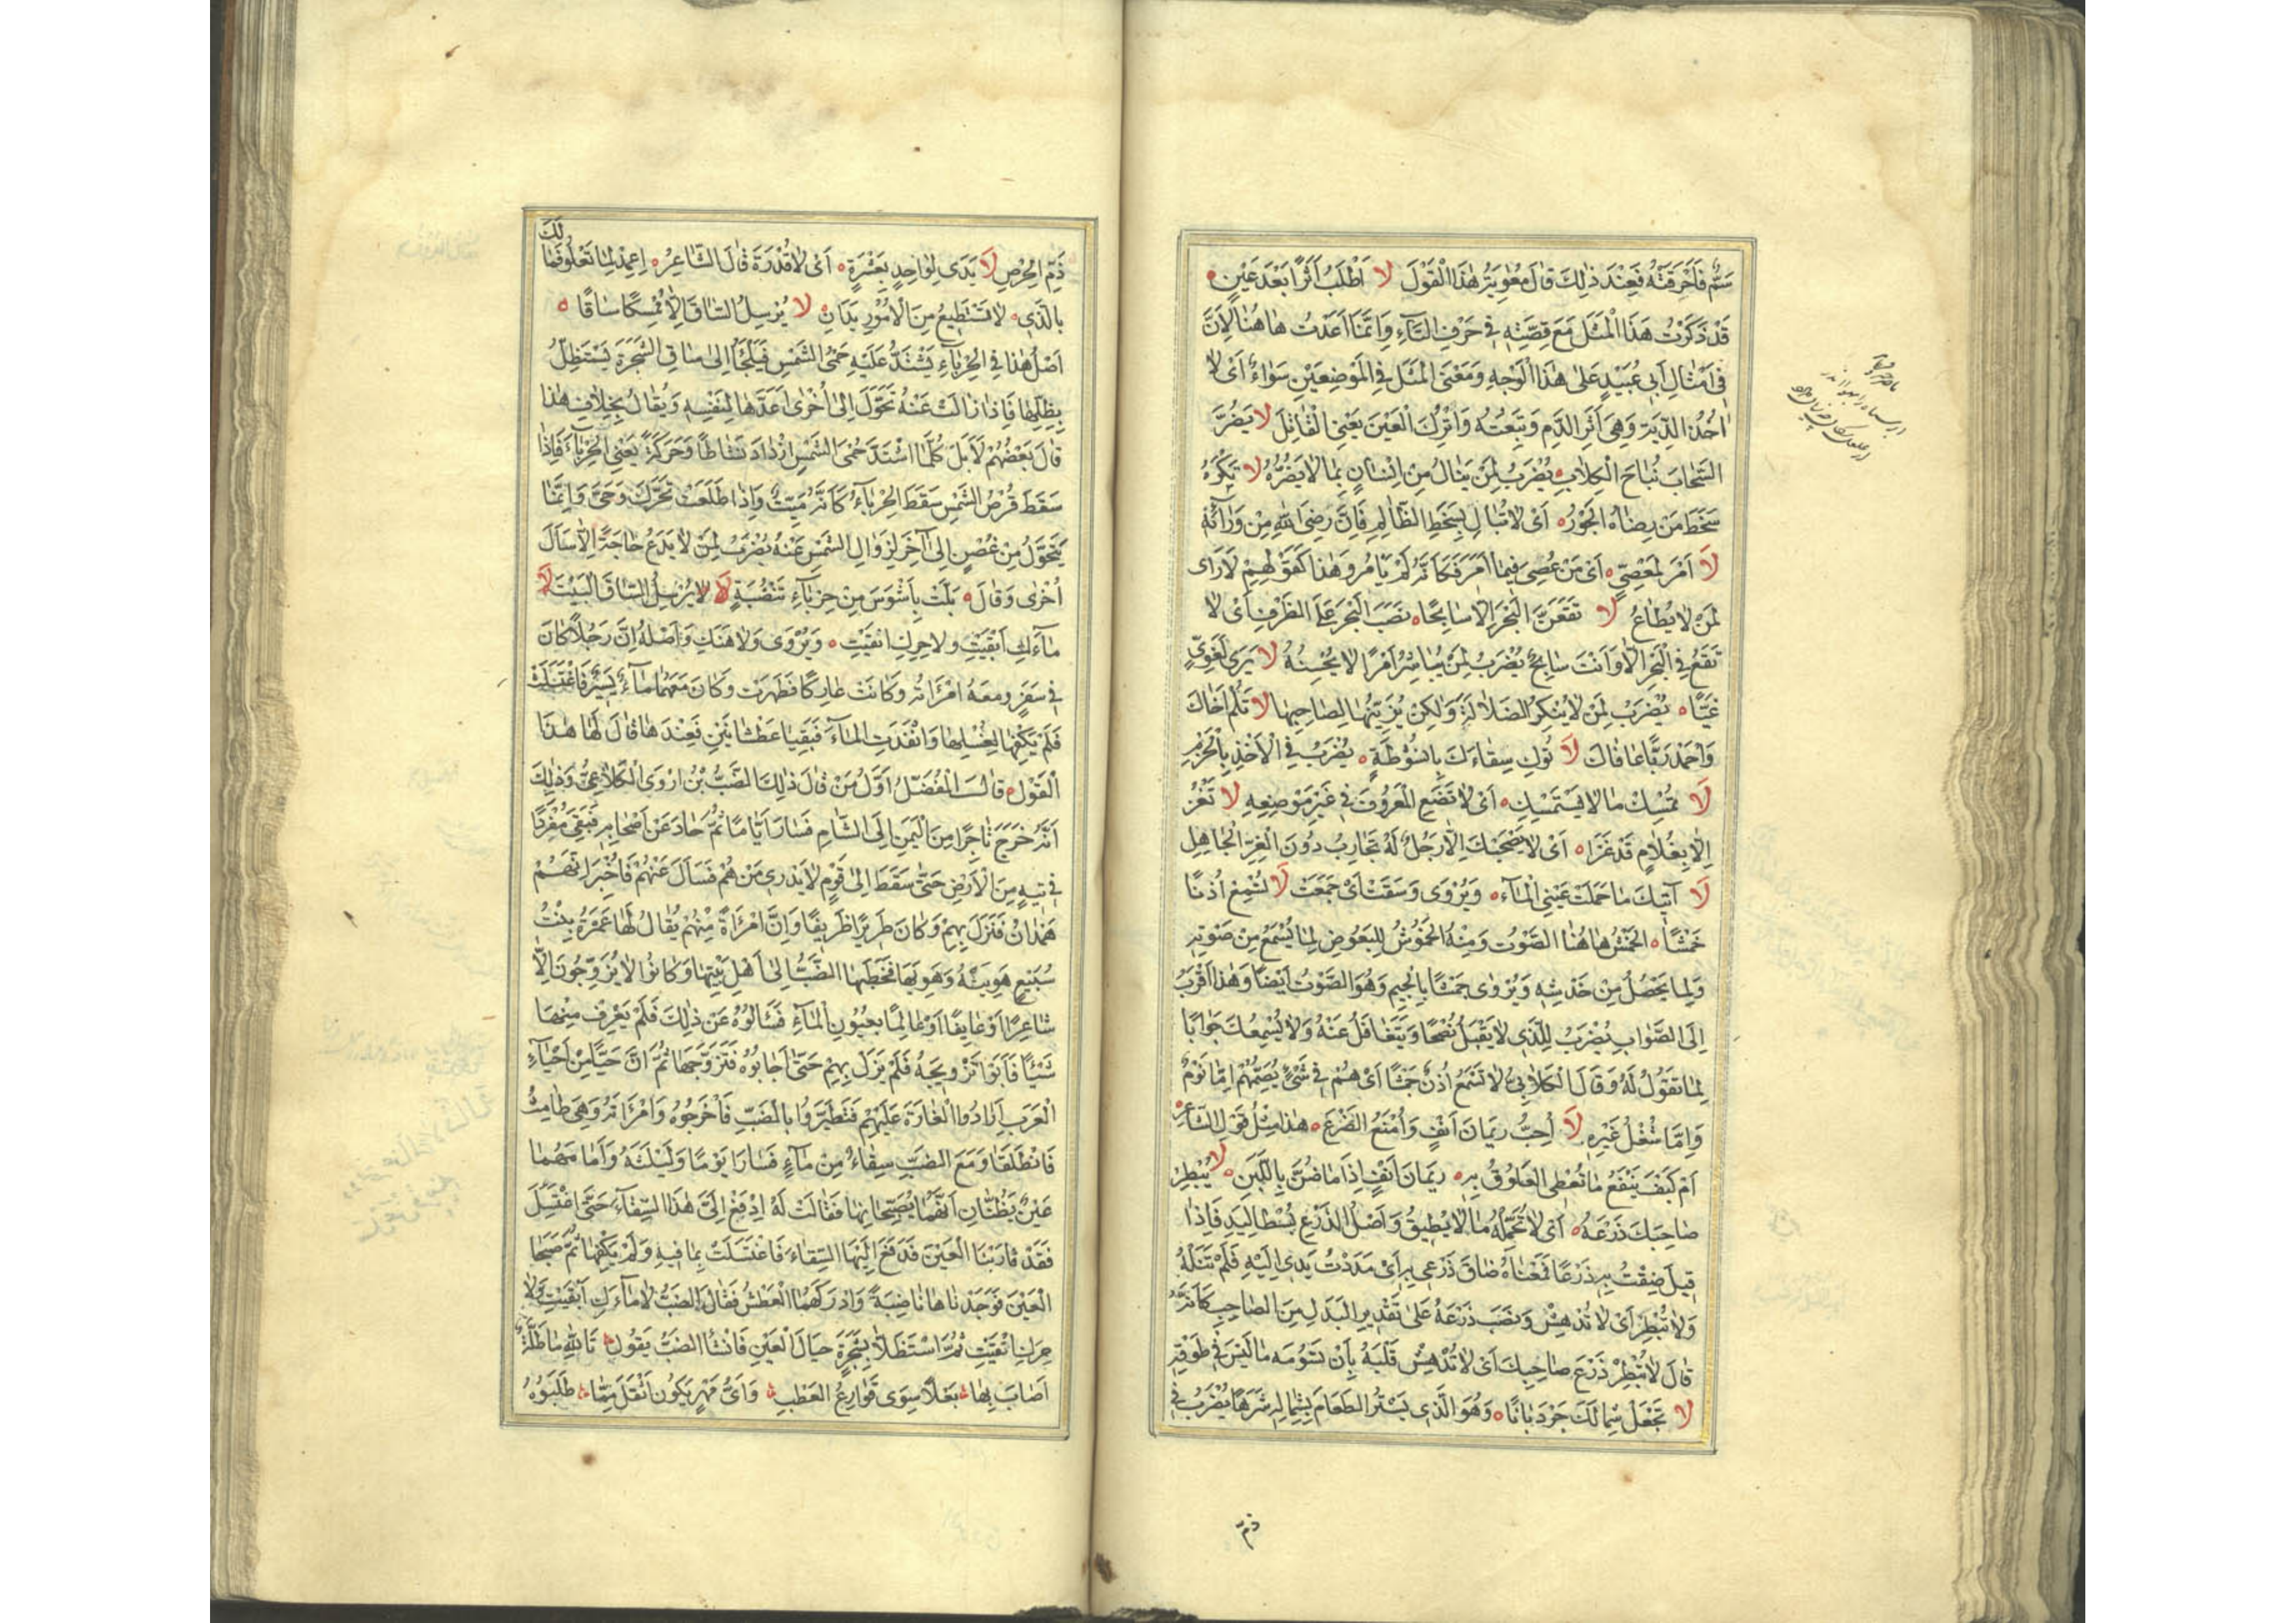 سَمٌّ فَاَحْرَقَتْهُ فَعِنْدَ ذٰلِكَ قٰالَ مُعٰوِيَةُ هٰذَا الْقَوْلَ لا اَطْلَبُ اَثَرًا بَعْدَ عَيْنٍ
قَدْ ذَكَرْتُ هَذَا الْمَثَلَ مَعَ قِصَّتِهِ فِي حَرْفِ التّٰآءِ وَاِنَّمٰا اَعَدْتُ هٰاهُنٰا لِاَنَّ
فِي اَمْثٰالِ اَبِي عُبَيْدٍ عَلىٰ هٰذَا الْوَجْهِ وَمَعْنَى الْمَثَلِ فِي الْمَوْضِعَيْنِ سَوٰاءٌ اَىْ لٰا
اٰخُذُ الدِّيَةَ وَهِيَ اَثَرُ الدَّمِ وَتَبِعَتُهُ وَاَتْرُكُ الْعَيْنَ يَعْنِي الْقٰاتِلَ لا يَضُرُّ
السَّحٰابَ نُبٰاحُ الْكِلٰابِ يُضْرَبُ لِمَنْ يَنٰالُ مِنْ اِنْسٰانٍ بِمٰا لٰا يَضُرُّهُ لا تَكْرَهْ
سَخَطَ مَنْ رِضٰاهُ الْجَوْرُ اَىْ لٰا تُبٰالِ بِسَخَطِ الظّٰالِمِ فَاِنَّ رِضَى اللّٰهِ مِنْ وَرٰآئِهِ
لَا اَمْرَ لِمَعْصِيٍّ اَىْ مَنْ عُصِيَ فِيمٰا اَمَرَ فَكَاَنَّهُ لَمْ يَاْمُرْ وَهٰذَا كَقَوْلِهِمْ لَا رَاى
لِمَنْ لٰا يُطٰاعُ لا تَقَعَنَّ الْبَحْرَ اِلّٰا سٰابِحًا نَصَبَ الْبَحْرَ عَلَى الظَّرْفِ اَىْ لٰا
تَقَعْ فِي الْبَحْرِ اِلّٰا وَاَنْتَ سٰابِحٌ يُضْرَبُ لِمَنْ يُبٰاشِرُ اَمْرًا لٰا يُحْسِنُهُ لا يَرَى لِغَوِيٍّ
غَيًّا يُضْرَبُ لِمَنْ لٰا يُنْكِرُ الضَّلٰالَةَ وَلٰكِنْ يُزَيِّنُهٰا لِصٰاحِبِهٰا لا تَلُمْ اَخٰاكَ
وَاحْمَدْ رَبًّا عٰافٰاكَ لا تُوكِ سِقٰاءَكَ بِاُنْشُوطَةٍ يُضْرَبُ فِي الْاَخْذِ بِالْحَزْمِ
لَا تُمْسِكْ مٰا لٰا يَسْتَمْسِكُ اَىْ لٰا تَضَعِ الْمَعْرُوفَ فِي غَيْرِ مَوْضِعِهِ لا تَغْزُ
اِلّٰا بِغُلٰامٍ قَدْ غَزَا اَىْ لٰا يَصْحَبْكَ اِلّٰا رَجُلٌ لَهُ تَجٰارِبُ دُونَ الْغِرِّ الْجٰاهِلِ
لَا آتِيكَ مٰا حَمَلَتْ عَيْنِي الْمٰآءَ وَيُرْوَى وَسَقَتْ اَىْ جَمَعَتْ لَا تُسْمِعْ اُذُنًا
خَمْشًا الْخَمْشُ هٰاهُنٰا الصَّوْتُ وَمِنْهُ الْخَمُوشُ لِلْبَعُوضِ لِمٰا يُسْمَعُ مِنْ صَوْتِهِ
وَلِمٰا يَحْصُلُ مِنْ خَدْشِهِ وَيُرْوٰى جَمْشًا بِالْجِيمِ وَهُوَ الصَّوْتُ اَيْضًا وَهٰذٰا اَقْرَبُ
اِلَى الصَّوٰابِ يُضْرَبُ لِلَّذِي لٰا يَقْبَلُ نُصْحًا وَيَتَغٰافَلُ عَنْهُ وَلٰا يُسْمِعُكَ جَوٰابًا
لِمٰا تَقُولُ لَهُ وَقَالَ الْكِلٰابِيُّ لٰا تَسْمَعُ اُذُنٌ جَمْشًا اَىْ هُمْ فِي شَىْءٍ يُصِمُّهُمْ اِمّٰا نَوْمٌ
وَاِمّٰا شُغْلُ غَيْرِهِ لَا اُحِبُّ رِيمَانَ اَنْفٍ وَاُمْنَعُ الضَّرْعَ هٰذٰا مِثْلُ قَوْلِ الشّٰاعِرِ
اَمْ كَيْفَ يَنْفَعُ مٰا تُعْطِى الْعَلُوقُ بِهِ رِيمَانَ اَنْفٍ اِذَا مٰا ضُنَّ بِاللَّبَنِ لَا يُبْطِرْ
صٰاحِبَكَ ذَرْعَهُ اَىْ لٰا تُحَمِّلْهُ مٰا لٰا يُطِيقُ وَاَصْلُ الذَّرْعِ بَسْطُ الْيَدِ فَاِذٰا
قِيلَ ضِقْتُ بِهِ ذَرْعًا فَمَعْنٰاهُ ضٰاقَ ذَرْعِي بِهِ اَىْ مَدَدْتُ يَدِي اِلَيْهِ فَلَمْ تَنَلْهُ
وَلٰا تُبْطِرْ اَىْ لٰا تُدْهِشْ وَنَصَبَ ذَرْعَهُ عَلىٰ تَقْدِيرِ الْبَدَلِ مِنَ الصّٰاحِبِ كَاَنَّهُ
قٰالَ لٰا تُبْطِرْ ذَرْعَ صٰاحِبِكَ اَىْ لٰا تُدْهِشْ قَلْبَهُ بِاَنْ تَسُومَهُ مٰا لَيْسَ فِي طَوْقِهِ
لا تَجْعَلْ شِمٰالَكَ جَرْدَبٰانًا وَهُوَ الَّذِي يَسْتُرُ الطَّعٰامَ بِشِمٰالِهِ شَرَهًا يُضْرَبُ فِي
ذمّ
ذَمِّ الْحِرْصِ لَا يَدَى لِوٰاحِدٍ بِعَشَرَةٍ اَىْ لٰا قُدْرَةَ قٰالَ الشّٰاعِرُ اِعْمِدْ لِمٰا تَعْلُو فَمٰا لَكَ
بِالَّذِي لٰا تَسْتَطِيعُ مِنَ الْاُمُورِ يَدَانِ لا يُرْسِلُ السّٰاقَ اِلّٰا مُمْسِكًا سٰاقًا
اَصْلُ هٰذٰا فِي الْحِرْبٰآءِ يَشْتَدُّ عَلَيْهِ حَمْىُ الشَّمْسِ فَيَلْجَأُ اِلىٰ سٰاقِ الشَّجَرَةِ يَسْتَظِلُّ
بِظِلِّهٰا فَاِذٰا زٰالَتْ عَنْهُ تَحَوَّلَ اِلىٰ اُخْرٰى اَعَدَّهٰا لِنَفْسِهِ وَيُقٰالُ بِخِلٰافِ هٰذٰا
قٰالَ بَعْضُهُمْ لَا بَلْ كُلَّمَا اشْتَدَّ حُمْىُ الشَّمْسِ ازْدٰادَ نَشٰاطًا وَحَرَكَةً يَعْنِي الْحِرْبٰآءَ فَاِذٰا
سَقَطَ قُرْصُ الشَّمْسِ سَقَطَ الْحِرْبٰآءُ كَاَنَّهُ مَيِّتٌ وَاِذٰا طَلَعَتْ تَحَرَّكَ وَحَيِىَ وَاِنَّمٰا
يَتَحَوَّلُ مِنْ غُصْنٍ اِلىٰ آخَرَ لِزَوٰالِ الشَّمْسِ عَنْهُ يُضْرَبُ لِمَنْ لٰا يَدَعُ حٰاجَةً اِلّٰا سَاَلَ
اُخْرٰى وَقٰالَ بَلَتْ بِاَشْوَسَ مِنْ حِرْبٰآءِ تَنْضُبَةٍ لَا لا يُرْسِلُ السّٰاقَ الْبَيْتَ لَا
مٰآءَكِ اَبْقَيْتِ وَلا حِرَكِ انْقَيْتِ وَيُرْوٰى وَلٰا هَنَكِ وَاَصْلُهُ اِنَّ رَجُلًا كٰانَ
فِي سَفَرٍ وَمَعَهُ امْرَاَتُهُ وَكٰانَتْ عٰارِكًا فَطَهُرَتْ وَكٰانَ مَعَهُمٰا مٰآءٌ يَسِيرٌ فَاغْتَسَلَتْ
فَلَمْ يَكْفِهٰا لِغُسْلِهٰا وَاَنْفَدَتِ الْمٰآءَ فَبَقِيٰا عَطْشٰانَيْنِ فَعِنْدَهٰا قٰالَ لَهٰا هٰذَا
الْقَوْلَ قٰالَ الْمُفَضَّلُ اَوَّلُ مَنْ قٰالَ ذٰلِكَ الضَّبُّ بْنُ اَرْوَى الْكَلٰاعِيُّ وَذٰلِكَ
اَنَّهُ خَرَجَ تٰاجِرًا مِنَ الْيَمَنِ اِلَى الشّٰامِ فَسٰارَ اَيّٰامًا ثُمَّ حٰادَ عَنْ اَصْحٰابِهِ فَبَقِيَ مُفْرَدًا
فِي تِيهٍ مِنَ الْاَرْضِ حَتّٰى سَقَطَ اِلىٰ قَوْمٍ لٰا يَدْرِي مَنْ هُمْ فَسَاَلَ عَنْهُمْ فَاُخْبِرَ اَنَّهُمْ
هَمْدٰانُ فَنَزَلَ بِهِمْ وَكٰانَ طَرِيرًا ظَرِيفًا وَاِنَّ امْرَاَةً مِنْهُمْ يُقٰالُ لَهٰا عَمْرَةُ بِنْتُ
سُبَيْعٍ هَوِيَتْهُ وَهَوِيَهٰا فَخَطَبَهٰا الضَّبُّ اِلىٰ اَهْلِ بَيْتِهٰا وَكٰانُوا لٰا يُزَوِّجُونَ اِلّٰا
شٰاعِرًا اَوْ عٰايِفًا اَوْ عٰالِمًا بِعُيُونِ الْمٰآءِ فَسَاَلُوهُ عَنْ ذٰلِكَ فَلَمْ يَعْرِفْ مِنْهٰا
شَيْئًا فَاَبَوْا تَزْوِيجَهُ فَلَمْ يَزَلْ بِهِمْ حَتّٰى اَجٰابُوهُ فَتَزَوَّجَهٰا ثُمَّ اِنَّ حَيًّا مِنْ اَحْيٰآءِ
الْعَرَبِ اَرٰادُوا الْغٰارَةَ عَلَيْهِمْ فَتَطَيَّرُوا بِالضَّبِّ فَاَخْرَجُوهُ وَامْرَاَتَهُ وَهِيَ طٰامِثٌ
فَانْطَلَقٰا وَمَعَ الضَّبِّ سِقٰاءٌ مِنْ مٰآءٍ فَسٰارَا يَوْمًا وَلَيْلَةً وَاَمٰامَهُمٰا
عَيْنٌ يَظُنّٰانِ اَنَّهُمٰا يُصَبِّحٰانِهٰا فَقٰالَتْ لَهُ اِدْفَعْ اِلَىَّ هٰذَا السِّقٰآءَ حَتّٰى اَغْتَسِلَ
فَقَدْ قٰارَبْنَا الْعَيْنَ فَدَفَعَ اِلَيْهَا السِّقٰاءَ فَاغْتَسَلَتْ بِمٰا فِيهِ وَلَمْ يَكْفِهٰا ثُمَّ صَبَّحَا
الْعَيْنَ فَوَجَدٰاهٰا نٰاضِبَةً وَاَدْرَكَهُمَا الْعَطَشُ فَقٰالَ الضَّبُّ لٰا مٰآءَكِ اَبْقَيْتِ وَلٰا
حِرَكِ انْقَيْتِ ثُمَّ اسْتَظَلَّا بِشَجَرَةٍ حِيٰالَ الْعَيْنِ فَانْشَأَ الضَّبُّ يَقُولُ تَاللّٰهِ مٰا طَلَّةٌ
اَصٰابَ بِهٰا بَعْلًا سِوَى قَوٰارِعُ الْعَطَبِ وَاَىُّ مَهْرٍ يَكُونُ اَثْقَلَ مِمّٰا طَلَبُوهُ